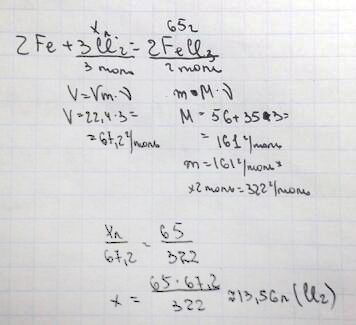 xл 65г
2Fe + 3Cl2 = 2FeCl3
3 моль 2 моль
V = Vm · ν m = M · ν
V = 22,4 · 3 = M = 56 + 35 · 3 =
= 67,2 г/моль = 161 г/моль
m = 161 г/моль ×
× 2 моль = 322 г/моль
xл/67,2 = 65/322
x = 65 · 67,2/322 ≈ 13,56л (Cl2)